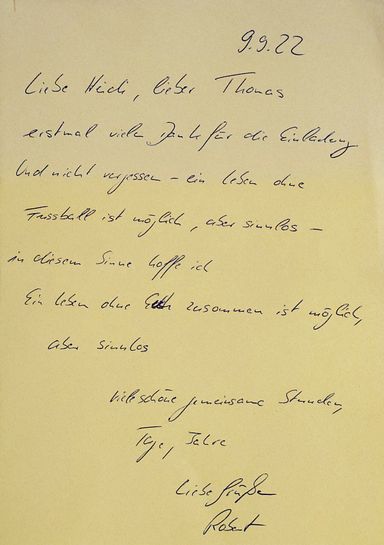 9.9.22
Liebe Heidi, lieber Thomas
erstmal vielen Dank für die Einladung
Und nicht vergessen – ein Leben ohne
Fussball ist möglich, aber sinnlos –
in diesem Sinne hoffe ich
Ein Leben ohne zusammen ist möglich,
aber sinnlos
Viele schöne gemeinsame Stunden,
Tage, Jahre
Liebe Grüße
Robert